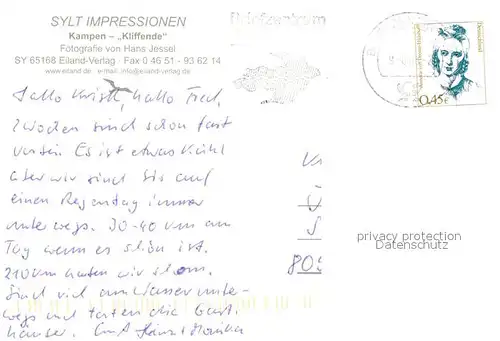 SYLT IMPRESSIONEN
Kampen – „Kliffende“
Fotografie von Hans Jessel
SY 65168 Eiland-Verlag · Fax 0 46 51 - 93 62 14
www.eiland.de · e-mail: info@eiland-verlag.de
Briefzentrum
Deutschland
0,45€
Hallo Kristl, hallo Fred,
2 Wochen sind schon fast
vorbei. Es ist etwas kühl
aber wir sind bis auf
einen Regentag immer
unterwegs. 30-40 km am
Tag wenn es schön ist.
210 km haben wir schon.
Sind viel am Wasser unter-
wegs und testen die Gast
häuser. Gruß Hans + Monika
privacy protection
Datenschutz